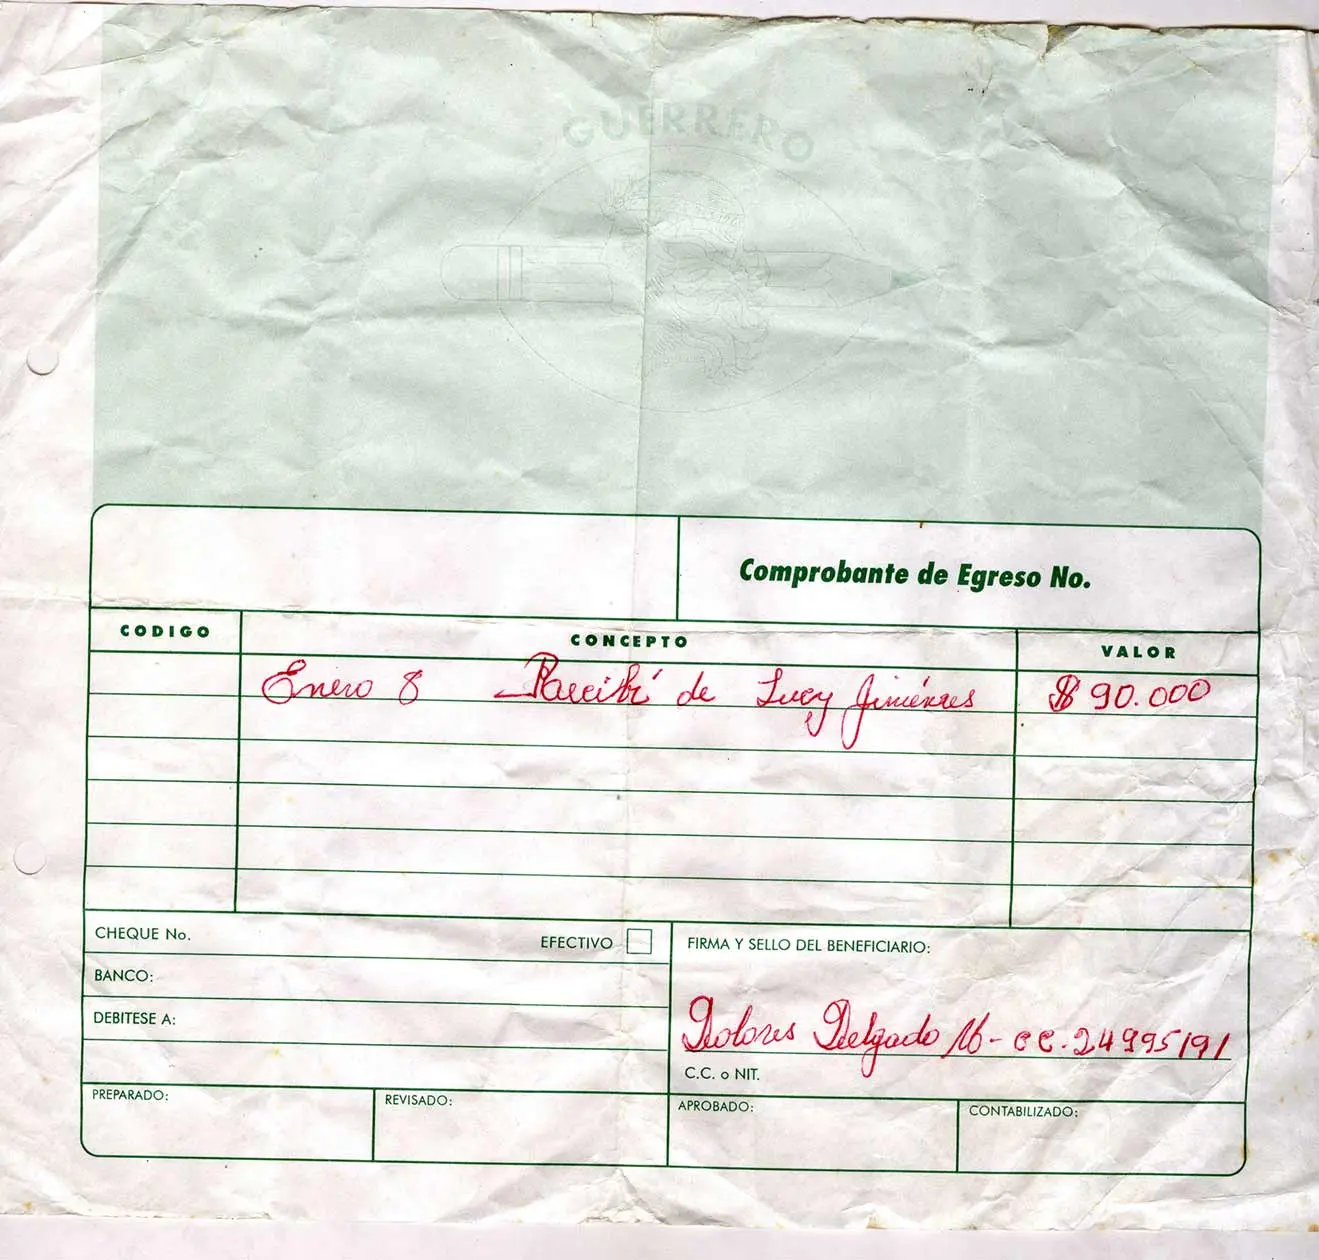 GUERRERO
Comprobante de Egreso No.
CODIGO CONCEPTO VALOR
Enero 8 Recibí de Lucy Jiménes $ 90.000
CHEQUE No. EFECTIVO
BANCO:
DEBITESE A:
FIRMA Y SELLO DEL BENEFICIARIO:
Dolores Delgado M- cc. 24995191
C.C. o NIT.
PREPARADO: REVISADO: APROBADO: CONTABILIZADO: